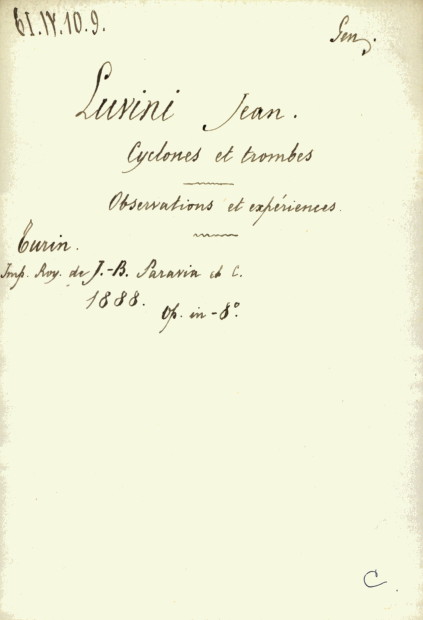 61.IV.10.9.
Gen.
Luvini Jean.
Cyclones et trombes
Observations et expériences.
Turin.
Imp. Roy. de J.-B. Paravia et C.
1888.
Op. in-8°.
C